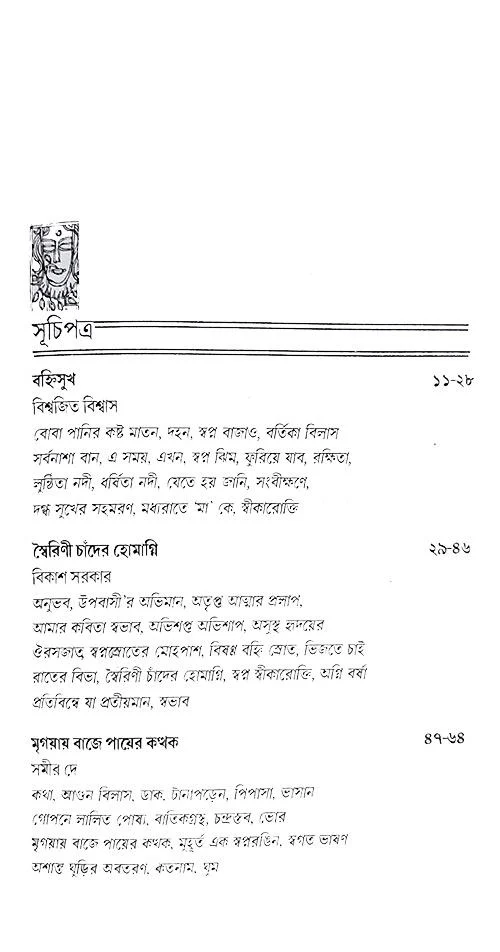 সূচিপত্র
বহ্নিসুখ ১১-২৮
বিশ্বজিত বিশ্বাস
বোবা পানির কষ্ট মাতন, দহন, স্বপ্ন বাজাও, বর্তিকা বিলাস
সর্বনাশা বান, এ সময়, এখন, স্বপ্ন ঝিম, ফুরিয়ে যাব, রক্ষিতা,
লুণ্ঠিতা নদী, ধর্ষিতা নদী, যেতে হয় জানি, সংবীক্ষণে,
দগ্ধ সুখের সহমরণ, মধ্যরাতে 'মা' কে, স্বীকারোক্তি
স্বৈরিণী চাঁদের হোমাগ্নি ২৯-৪৬
বিকাশ সরকার
অনুভব, উপবাসী'র অভিমান, অতৃপ্ত আত্মার প্রলাপ,
আমার কবিতা স্বভাব, অভিশপ্ত অভিশাপ, অসুস্থ হৃদয়ের
ঔরসজাত্ব স্বপ্নস্রোতের মোহপাশ, বিষণ্ণ বহ্নি স্রোত, ভিজতে চাই
রাতের বিভা, স্বৈরিণী চাঁদের হোমাগ্নি, স্বপ্ন স্বীকারোক্তি, অগ্নি বর্ষা
প্রতিবিম্বে যা প্রতীয়মান, স্বভাব
মৃগয়ায় বাজে পায়ের কত্থক ৪৭-৬৪
সমীর দে
কথা, আগুন বিলাস, ডাক, টানাপড়েন, পিপাসা, ভাসান
গোপনে লালিত পোষ্য, বাতিকগ্রস্থ, চন্দ্রস্তব, ভোর
মৃগয়ায় বাজে পায়ের কত্থক, মুহূর্ত এক স্বপ্নরঙিন, স্বগত ভাষণ
অশান্ত ঘুড়ির অবতরণ, কতনাম, ঘুম